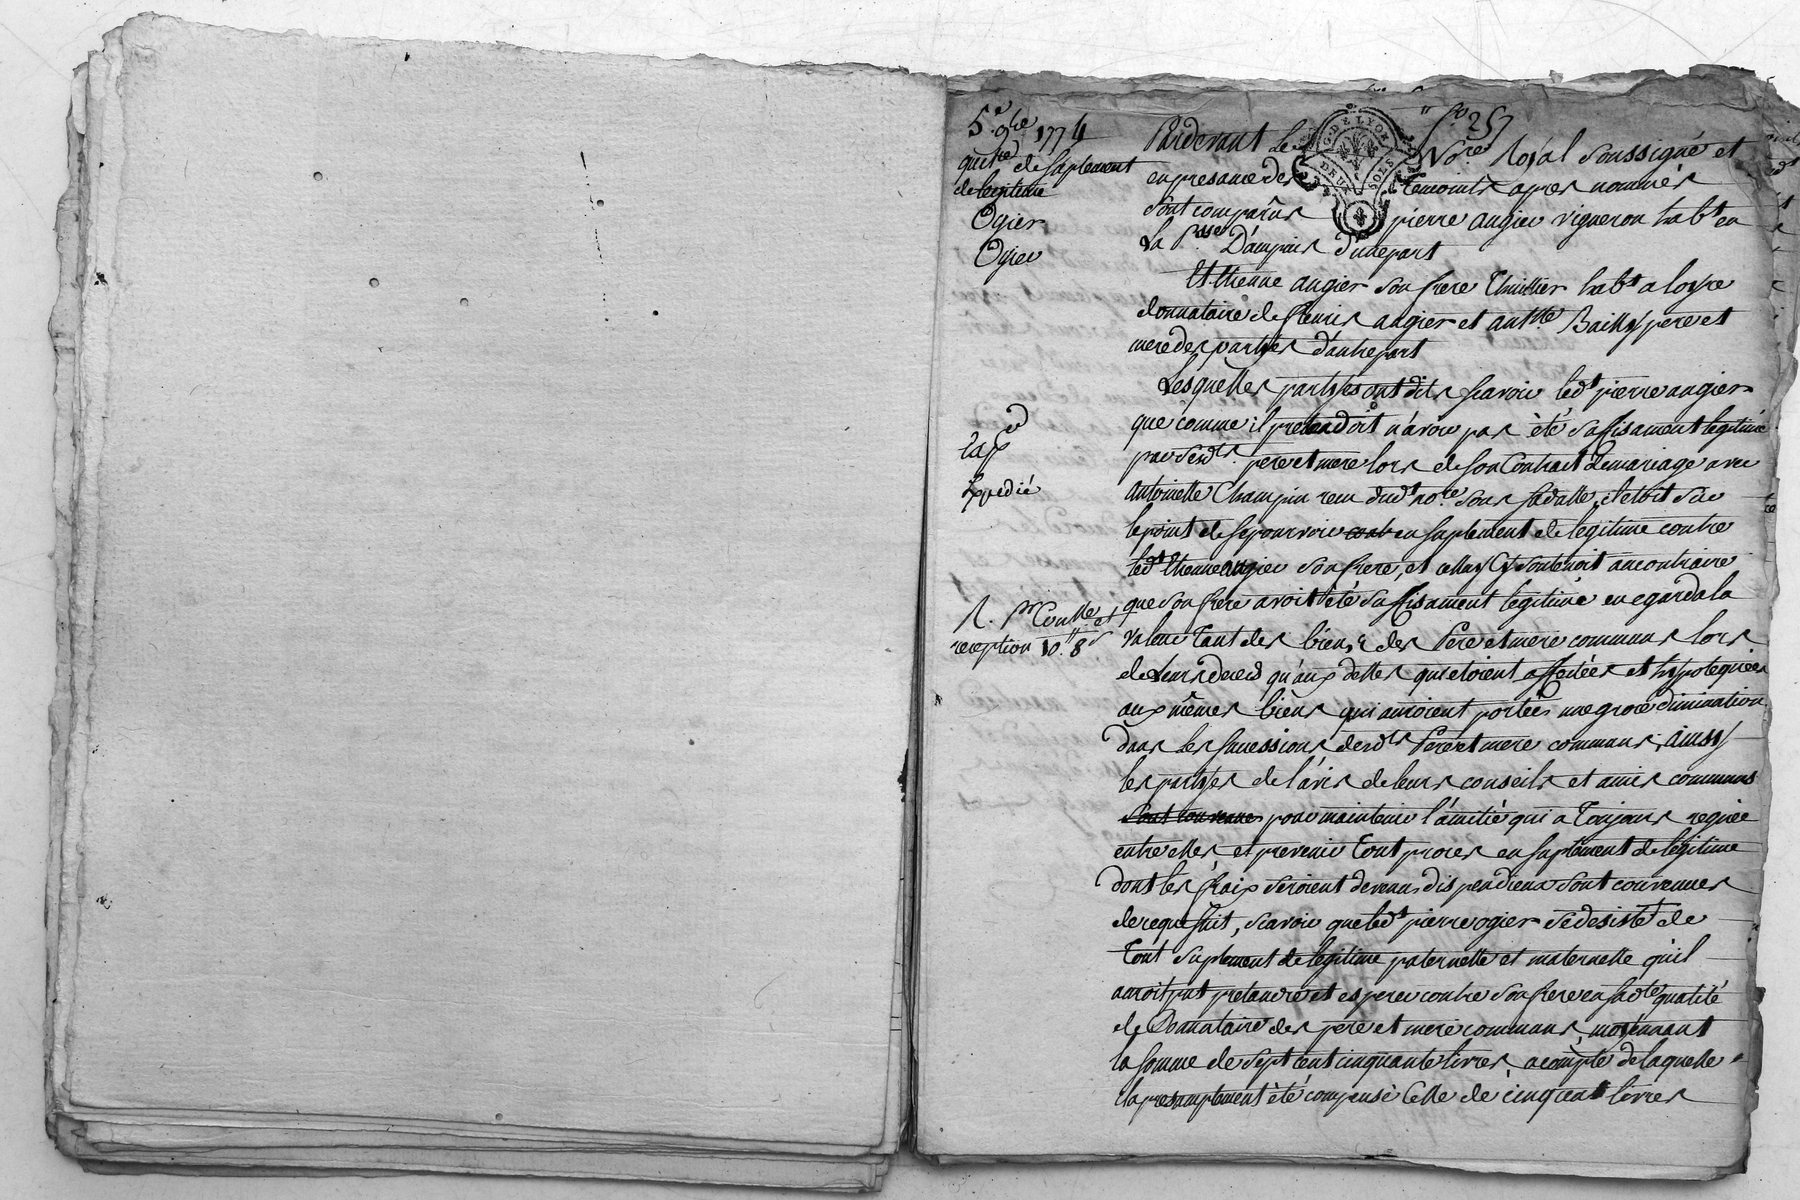 5.e 9bre 1774
quitce de suplement
de legitime
Ogier
Ogier
Exp.d
Expedié
reception 10.tt 8.s
f.o 257
G. DE LYON
DEUX SOLS
Pardevant Le No.re Royal soussigné et
en presance des temoints apres nommés
sont comparûs pierre augier vigneron hab.t en
la P.sse D'ampuis d'une part
Et Etienne augier son frere Thuillier hab.t a loyre
donnataire de fleuris augier et ant.tte Bailly pere et
mere des parties d'autre part
Lesquelles parties ont dits scavoir led.t pierre augier
que comme il pretendoit n'avoir pas été suffisament legitimé
par sesd.ts pere et mere lors de son Contrait de mariage avec
Antoinette Champin receu dud.t no.re sous sa datte, il etoit sur
le point de se pourvoir en suplement de legitime contre
led.t Etienne augier son frere, et celluy cy soutenoit aucontraire
que son frere avoit été suffisament legitimé en egard a la
valeur tant des biens des Pere et mere communs lors
de leurs deceds qu'aux dettes qui etoient affectées et hypotequées
aux mêmes biens qui auroient portées une grose diminution
dans les successions desd.ts Pere et mere communs, ainssy
les parties de l'avis de leurs conseils et amis communs
sont convenues pour maintenir l'amitié qui a toujours regnée
entre elles et prevenir tout proces en suplement de legitime
dont les fraix seroient devenus dispendieux sont convenues
de ce qui suit, scavoir que led.t pierre ogier se desisté de
tout suplement de legitime paternelle et maternelle qu'il
auroit put pretandre et esperer contre son frere en sad.te qualité
de Donnataire des pere et mere communs, moyennant
la somme de sept cent cinquante livres, acompte de laquelle
il a presamptement été compensé Celle de cinq cent livres